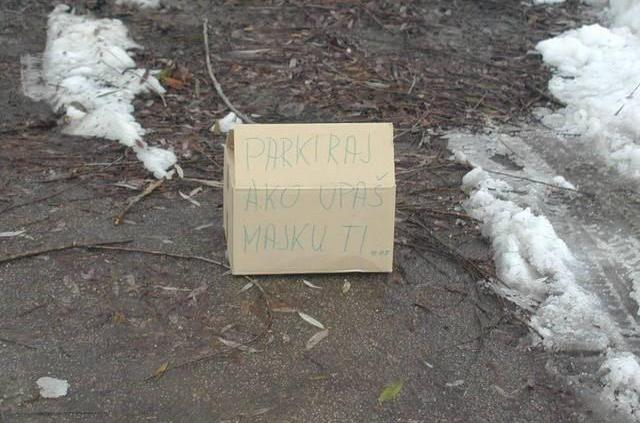 PARKIRAJ
AKO UPAŠ
MAJKU TI...